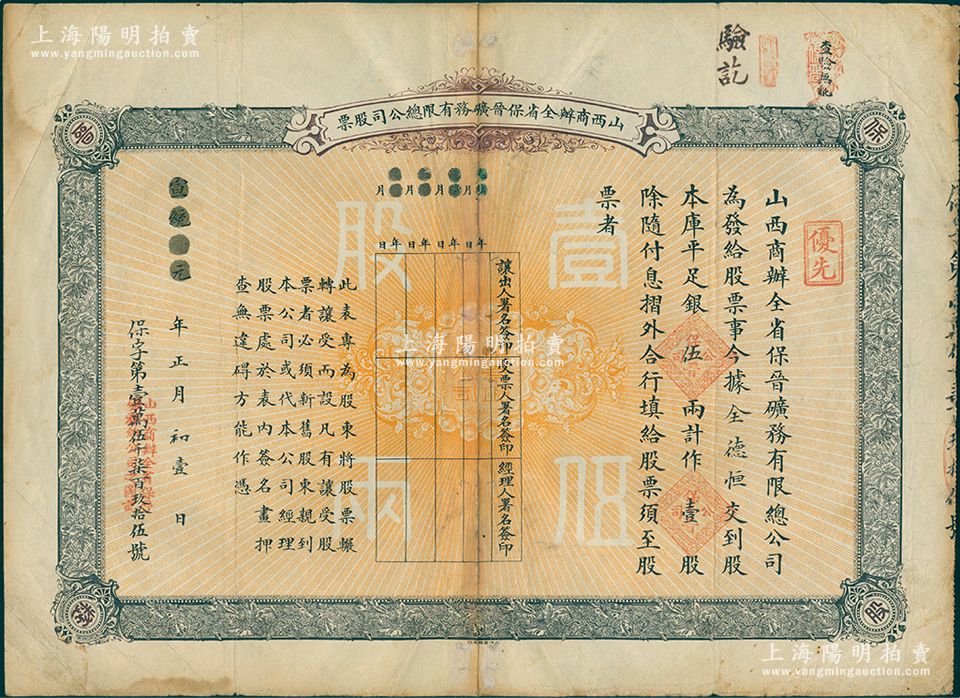 上海陽明拍賣
www.yangmingauction.com
上海陽明拍賣
www.yangmingauction.com
驗訖
查驗無訛
山西商辦全省保晉礦務有限總公司股票
保
晉
股
優先
山西商辦全省保晉礦務有限總公司
為發給股票事今據全德恒交到股
本庫平足銀伍兩計作壹股
除隨付息摺外合行填給股票須至股
票者
壹股
伍兩
年月日
年月日
年月日
年月日
讓出人署名簽印
受票人署名簽印
經理人署名簽印
此表專為股東將股票輾
轉讓受而設凡有讓受股
票者必須新舊股東親到
本公司或代本公司經理
股票處於表內簽名畫押
查無違碍方能作憑
宣統元年正月初壹日
保字第壹萬伍仟柒百玖拾伍號
上海陽明拍賣
www.yangmingauction.com
上海陽明拍賣
www.yangmingauction.com